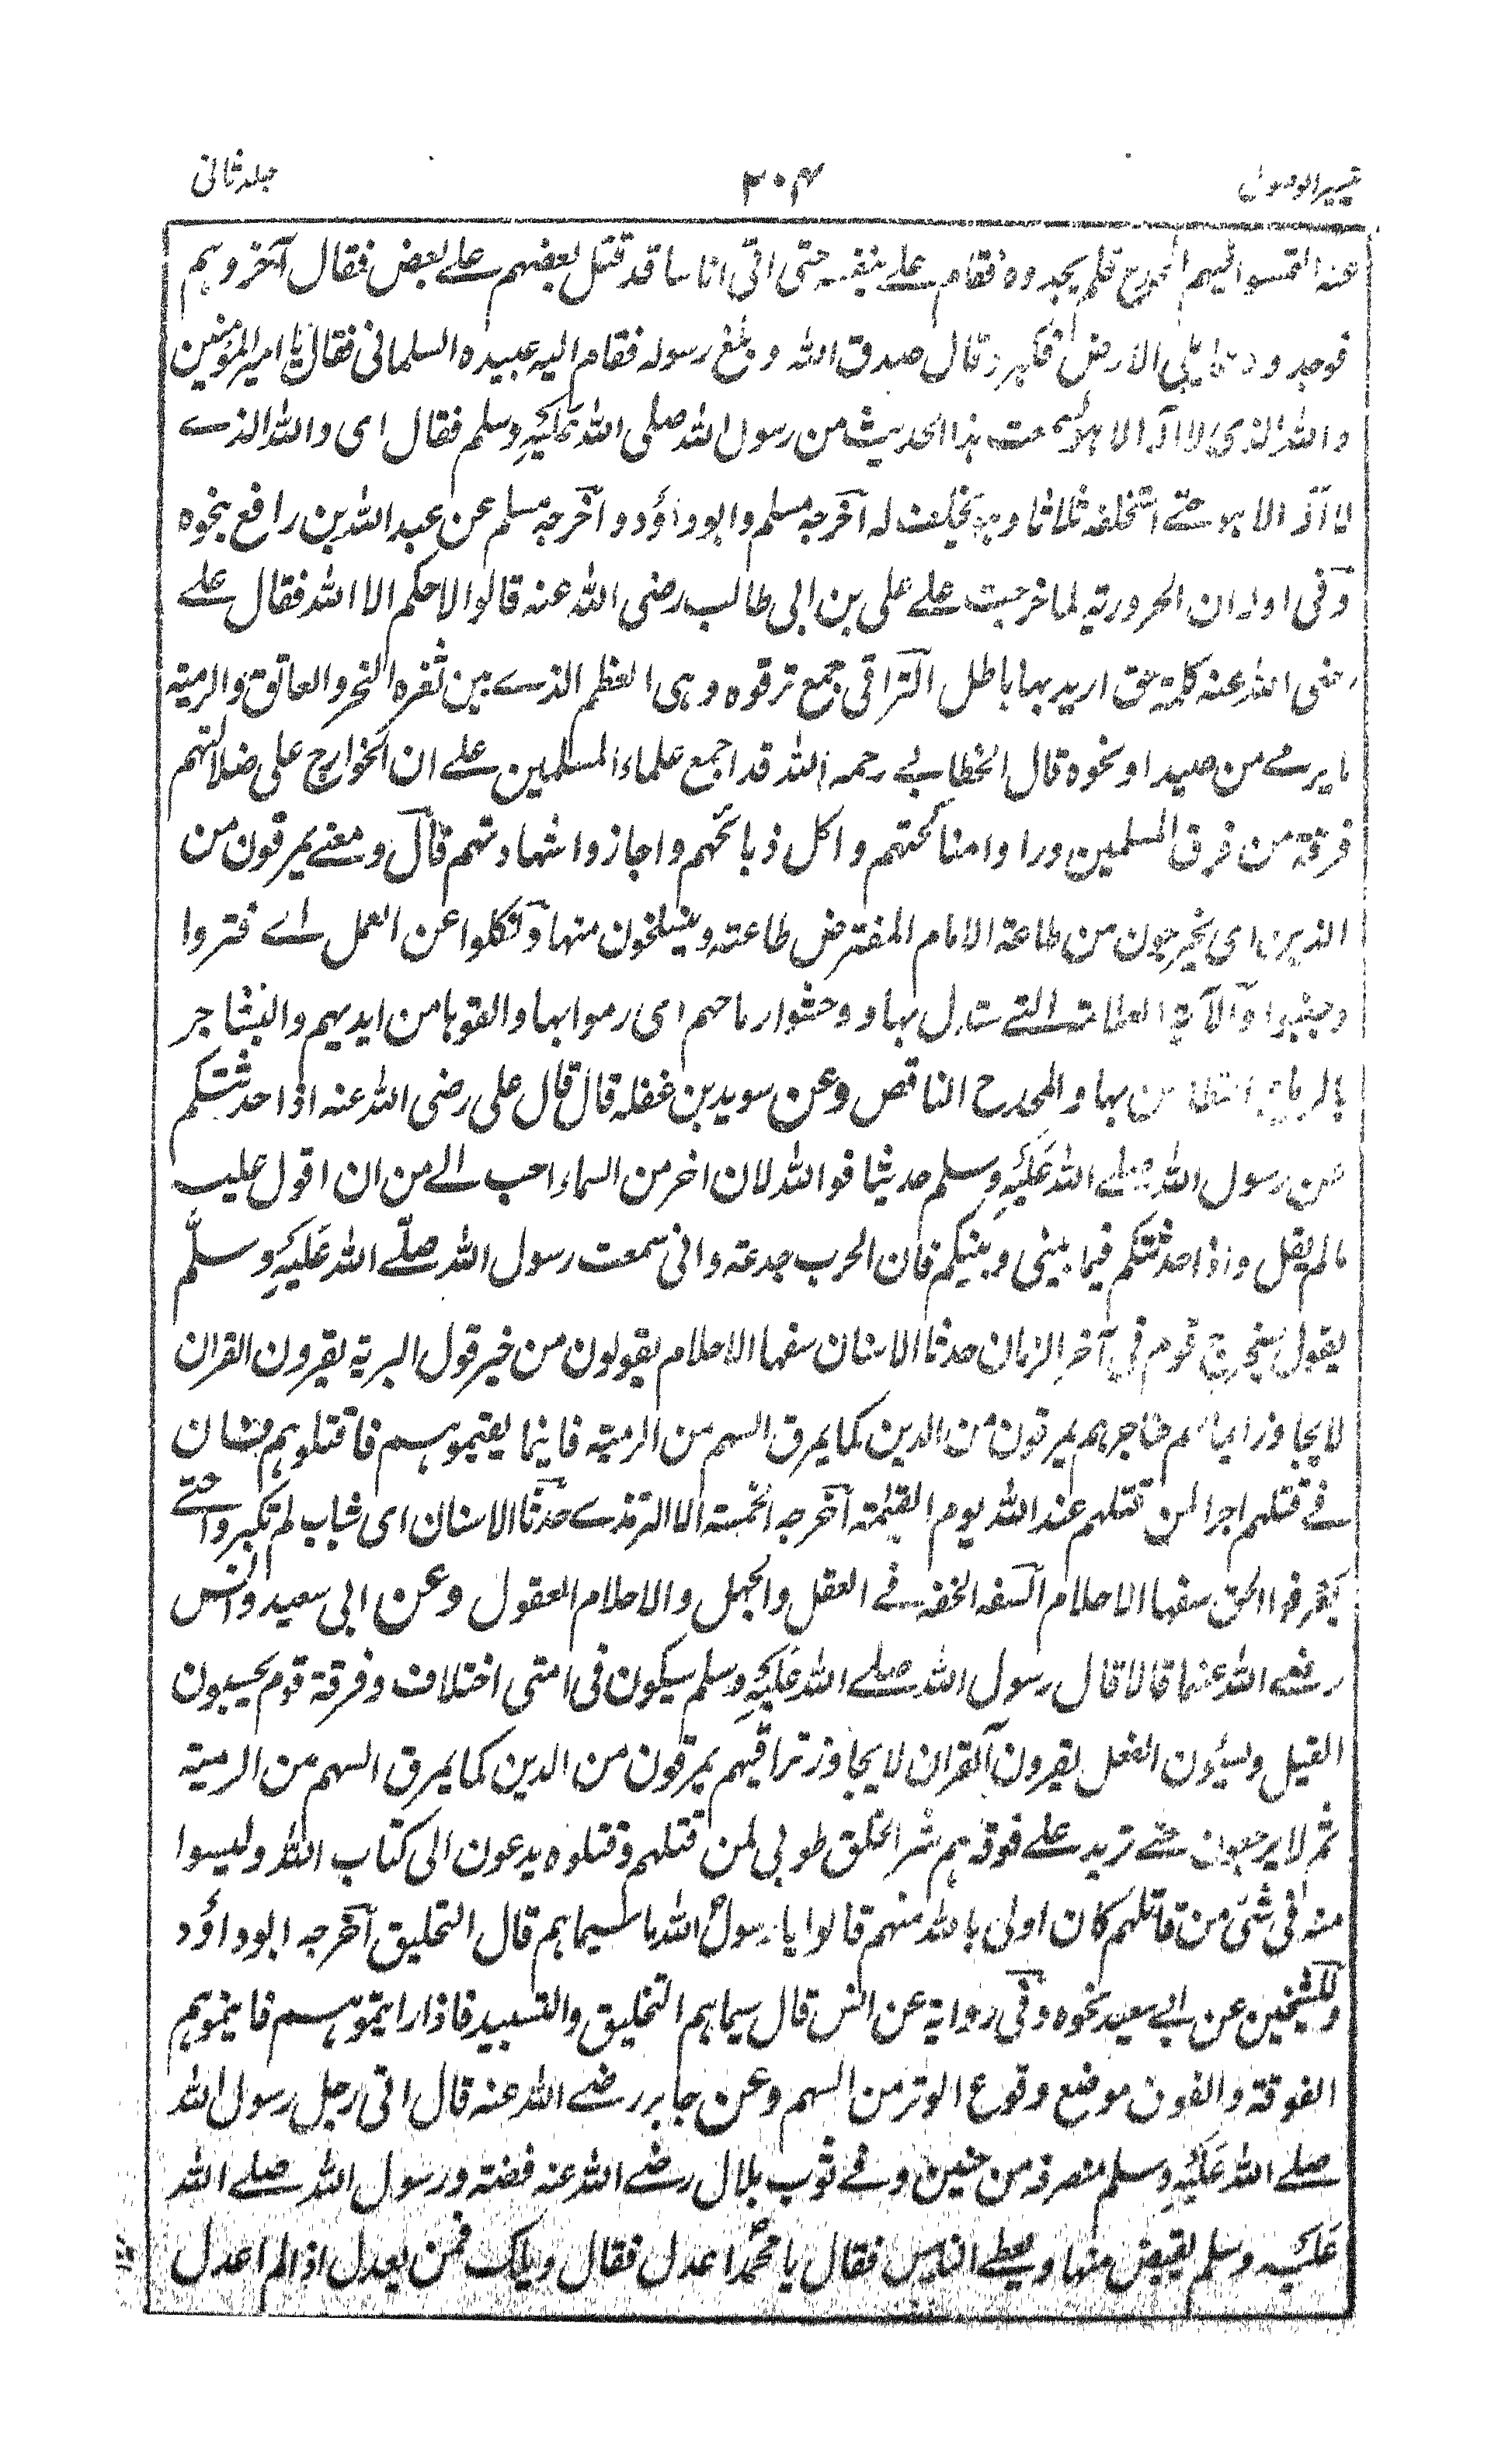 تيسير الوصول ٢٠٤ جلد ثانی
عنه التمسوا فيهم المخدج فلم يجدوه فقام علے بنفسه حتی اتی اناسا قد قتل بعضهم علے بعض فقال آخروهم
فوجدوه مما يلی الارض فكبر و قال صدق الله و بلغ رسوله فقام اليه عبيده السلمانی فقال يا امير المؤمنين
والله الذی لا اله الا هو لسمعت هذا الحديث من رسول الله صلی الله عَلَيْهِ وسلم فقال ای والله الذے
لا اله الا هو حتے استحلفه ثلاثا وهو يحلف له آخرجه مسلم وابوداؤد وآخرجه مسلم عن عبد الله بن رافع بنحوه
وفی اوله ان الحرورية لما خرجت علے علی بن ابی طالب رضی الله عنه قالوا لا حكم الا الله فقال علے
رضی الله عنه كلمة حق اريد بها باطل التراقی جمع ترقوه وهی العظم الذے بين ثغره النحر والعاتق والرمية
ما يرمے من صيد او نحوه قال الخطابے رحمه الله قد اجمع علماء المسلمين علے ان الخوارج علی ضلالتهم
فرقة من فرق المسلمين وراوا مناكحتهم واكل ذبائحهم واجازوا شهادتهم قال ومعنے يمرقون من
الدين ای يخرجون من طاعة الامام المفترض طاعته وينسلخون منها ونكلوا عن العمل اے فتروا
وجبنوا والآية العلامة التے يستدل بها ووحشوا رماحهم ای رموا بها والقوها من ايديهم والتشاجر
بالرماح بها والمخدج الناقص وعن سويد بن غفله قال قال علی رضی الله عنه اذا حدثتكم
عن رسول الله صلے الله عَلَيْهِ وسلم حديثا فوالله لان اخر من السماء احب الے من ان اقول عليه
ما لم يقل واذا حدثتكم فيما بينی وبينكم فان الحرب خدعة وانی سمعت رسول الله صلّے الله عَلَيْهِ وسلَّم
يقول سيخرج قوم فی آخر الزمان حدثا الاسنان سفها الاحلام يقولون من خير قول البرية يقرون القران
لا يجاوز ايمانهم حناجرهم يمرقون من الدين كما يمرق السهم من الرمية فاينما لقيتموهم فاقتلوهم فان
فے قتلهم اجرا لمن قتلهم عند الله يوم القيمة آخرجه الخمسة الا الترمذے حدثا الاسنان ای شباب لم تكبروا حتے
يعرفوا الحق سفها الاحلام السفه الخفه فے العقل والجهل والاحلام العقول وعن ابی سعيد وانس
رضے الله عنهما قالا قال رسول الله صلے الله عَلَيْهِ وسلم سيكون فی امتی اختلاف وفرقة قوم يحسنون
القيل ويسيؤن الفعل يقرون القران لا يجاوز تراقيهم يمرقون من الدين كما يمرق السهم من الرمية
ثم لا يرجعون حتے تريد علے فوقه هم شر الخلق طوبی لمن قتلهم وقتلوه يدعون الی كتاب الله وليسوا
منه فی شئ من قاتلهم كان اولی بالله منهم قالوا يا رسول الله ما سيماهم قال التحليق آخرجه ابوداؤد
وللشيخين عن ابے سعيد نحوه وفی رواية عن انس قال سيماهم التحليق والتسبيد فاذا رايتموهم فانيموهم
الفوقة والفوق موضع وقوع الوتر من السهم وعن جابر رضے الله عنه قال اتی رجل رسول الله
صلے الله عَلَيْهِ وسلم منصرفه من حنين وفے ثوب بلال رضے الله عنه فضة ورسول الله صلے الله
عَلَيْهِ وسلم يقبض منها ويعطے الناس فقال يا محمد اعدل فقال ويلك فمن يعدل اذا لم اعدل